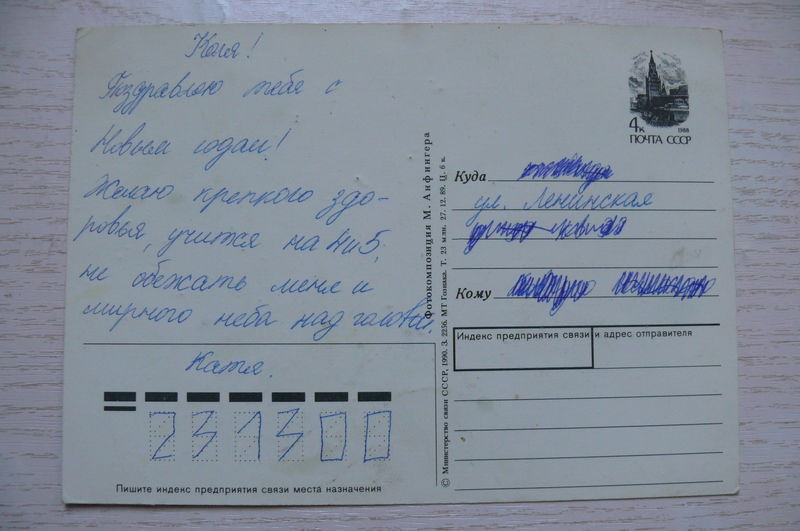 Коля!
Поздравляю тебя с
Новым годом!
Желаю крепкого здо-
ровья, учится на 4и5,
не обежать меня и
мирного неба над головой.
Катя.
231300
Пишите индекс предприятия связи места назначения
© Министерство связи СССР, 1990. З. 2256. МТ Гознака. Т. 23 млн. 27. 12. 89. Ц. 6 к.
Фотокомпозиция М. Анфингера
4к 1988
ПОЧТА СССР
Куда
ул. Ленинская
Кому
Индекс предприятия связи и адрес отправителя